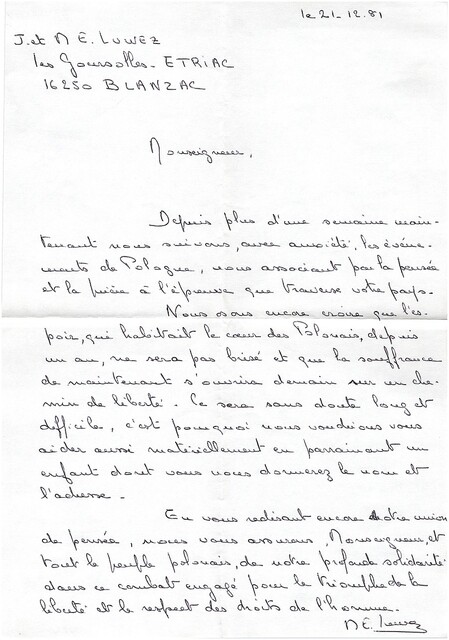 le 21-12.81
J. et M E. LUWEZ
les Goursolles - ETRIAC
16250 BLANZAC
Monseigneur,
Depuis plus d'une semaine main-
tenant nous suivons, avec anxiété, les événe-
ments de Pologne, nous associant par la pensée
et la prière à l'épreuve que traverse votre pays.
Nous encore croire que l'es-
poir, qui habitait le cœur des Polonais, depuis
un an, ne sera pas brisé et que la souffrance
de maintenant s'ouvrira demain sur un che-
min de liberté. Ce sera sans doute long et
difficile, c'est pourquoi nous voudrions vous
aider aussi matériellement en parrainant un
enfant dont vous nous donnerez le nom et
l'adresse.
En vous redisant encore notre union
de pensée, nous vous assurons, Monseigneur, et
tout le peuple polonais, de notre profonde solidarité
dans ce combat engagé pour le triomphe de la
liberté et le respect des droits de l'homme.
M E. Luwez